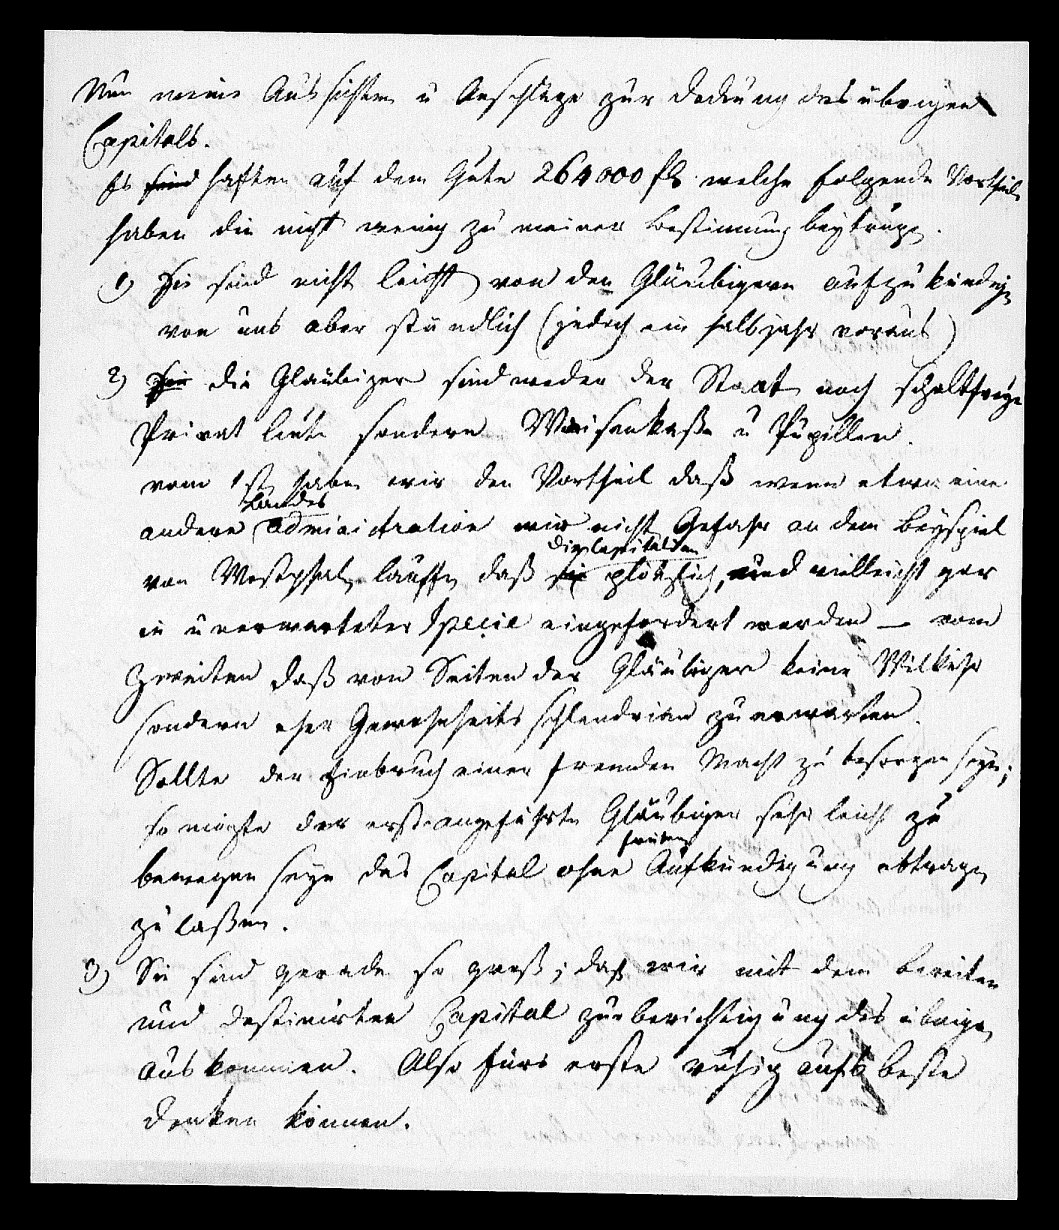 Nun meine Aussichten u Anschläge zur Deckung des übrigen
Capitals.
Es sind haften auf dem Gute 264000 fl. welche folgende Vortheile
haben die nicht wenig zu meiner Bestimmung beytrugen.
1) Sie sind nicht leicht von den Gläubigern aufzukündigen
von uns aber stündlich (jedoch ein halbjahr voraus)
2) Sie die Gläubiger sind weder der Staat noch
Privat leute sondern Waisenkaße u Pupillen.
vom 1st haben wir den Vortheil daß wenn etwa eine
Landes
andere administration wir nicht Gefahr an dem Beyspiel
die Capitalien
von Westphalen lauffen daß sie plötzlich, und vielleicht gar
in unerwarteter Specie eingefordert werden — vom
Zweiten daß von Seiten der Gläubiger keine Willkühr
sondern eher Gewohnheits schlendrian zu erwarten.
Sollte der Einbruch einer fremden Macht zu besorgen seyn;
so mögte der erst angeführte Gläubiger sehr leicht zu
bewegen seyn das Capital ohne Aufkündigung abtragen
zu laßen.
3) Sie sind gerade so groß; daß wir mit dem bereiten
und destinirten Capital zur berichtigung des übrigen
auskommen. Also fürs erste ruhig aufs beste
denken können.